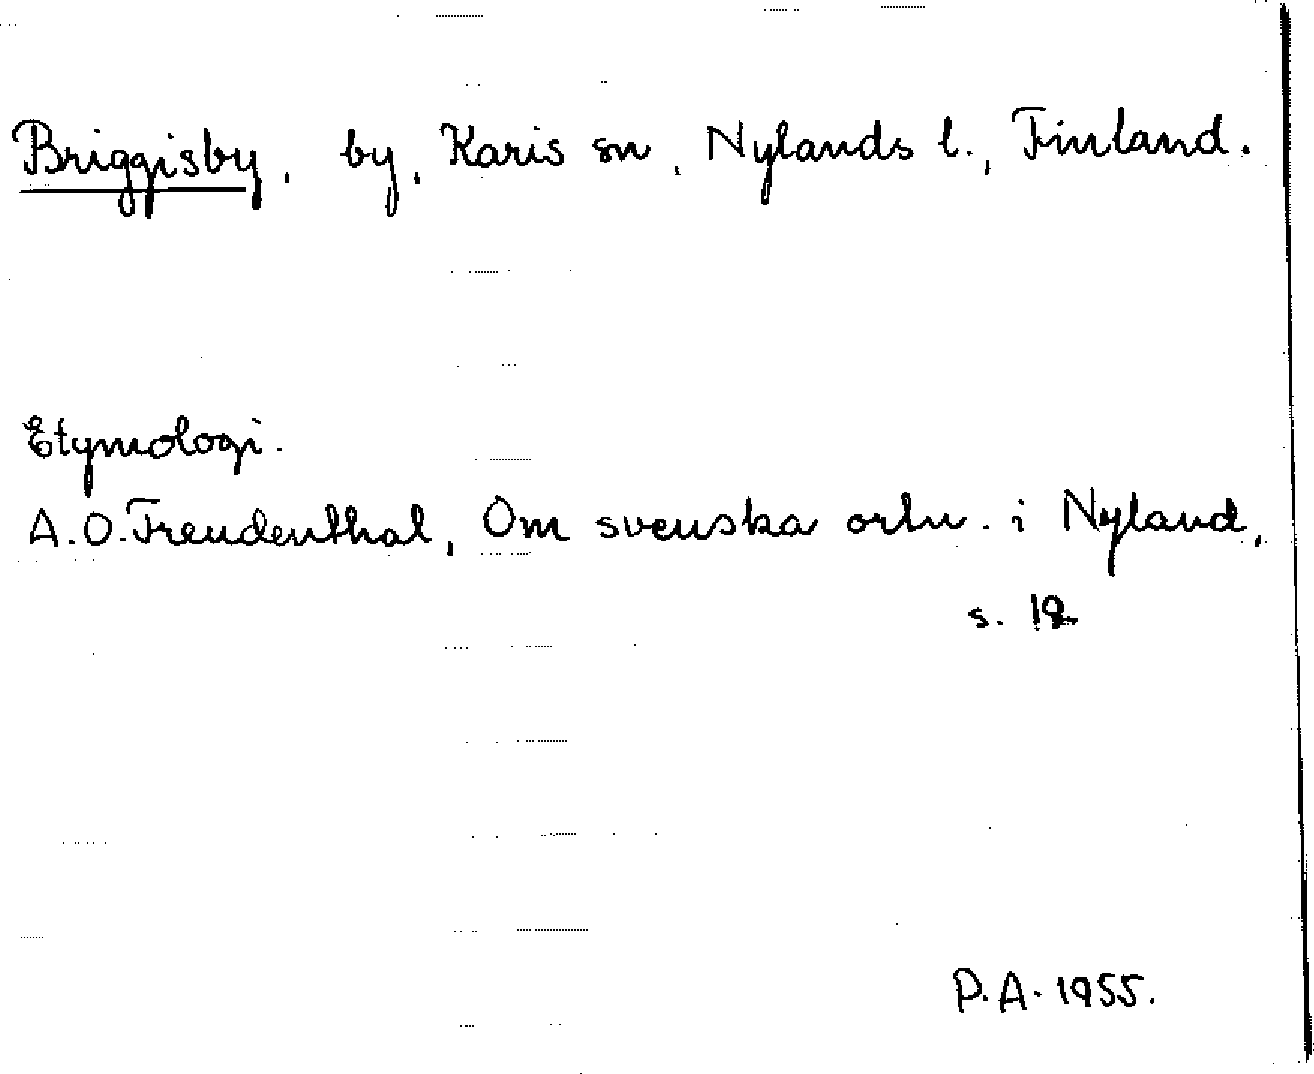 Briggisby, by, Karis sn, Nylands l., Finland.
Etymologi.
A.O. Freudenthal, Om svenska ortn. i Nyland,
s. 12
P.A. 1955.